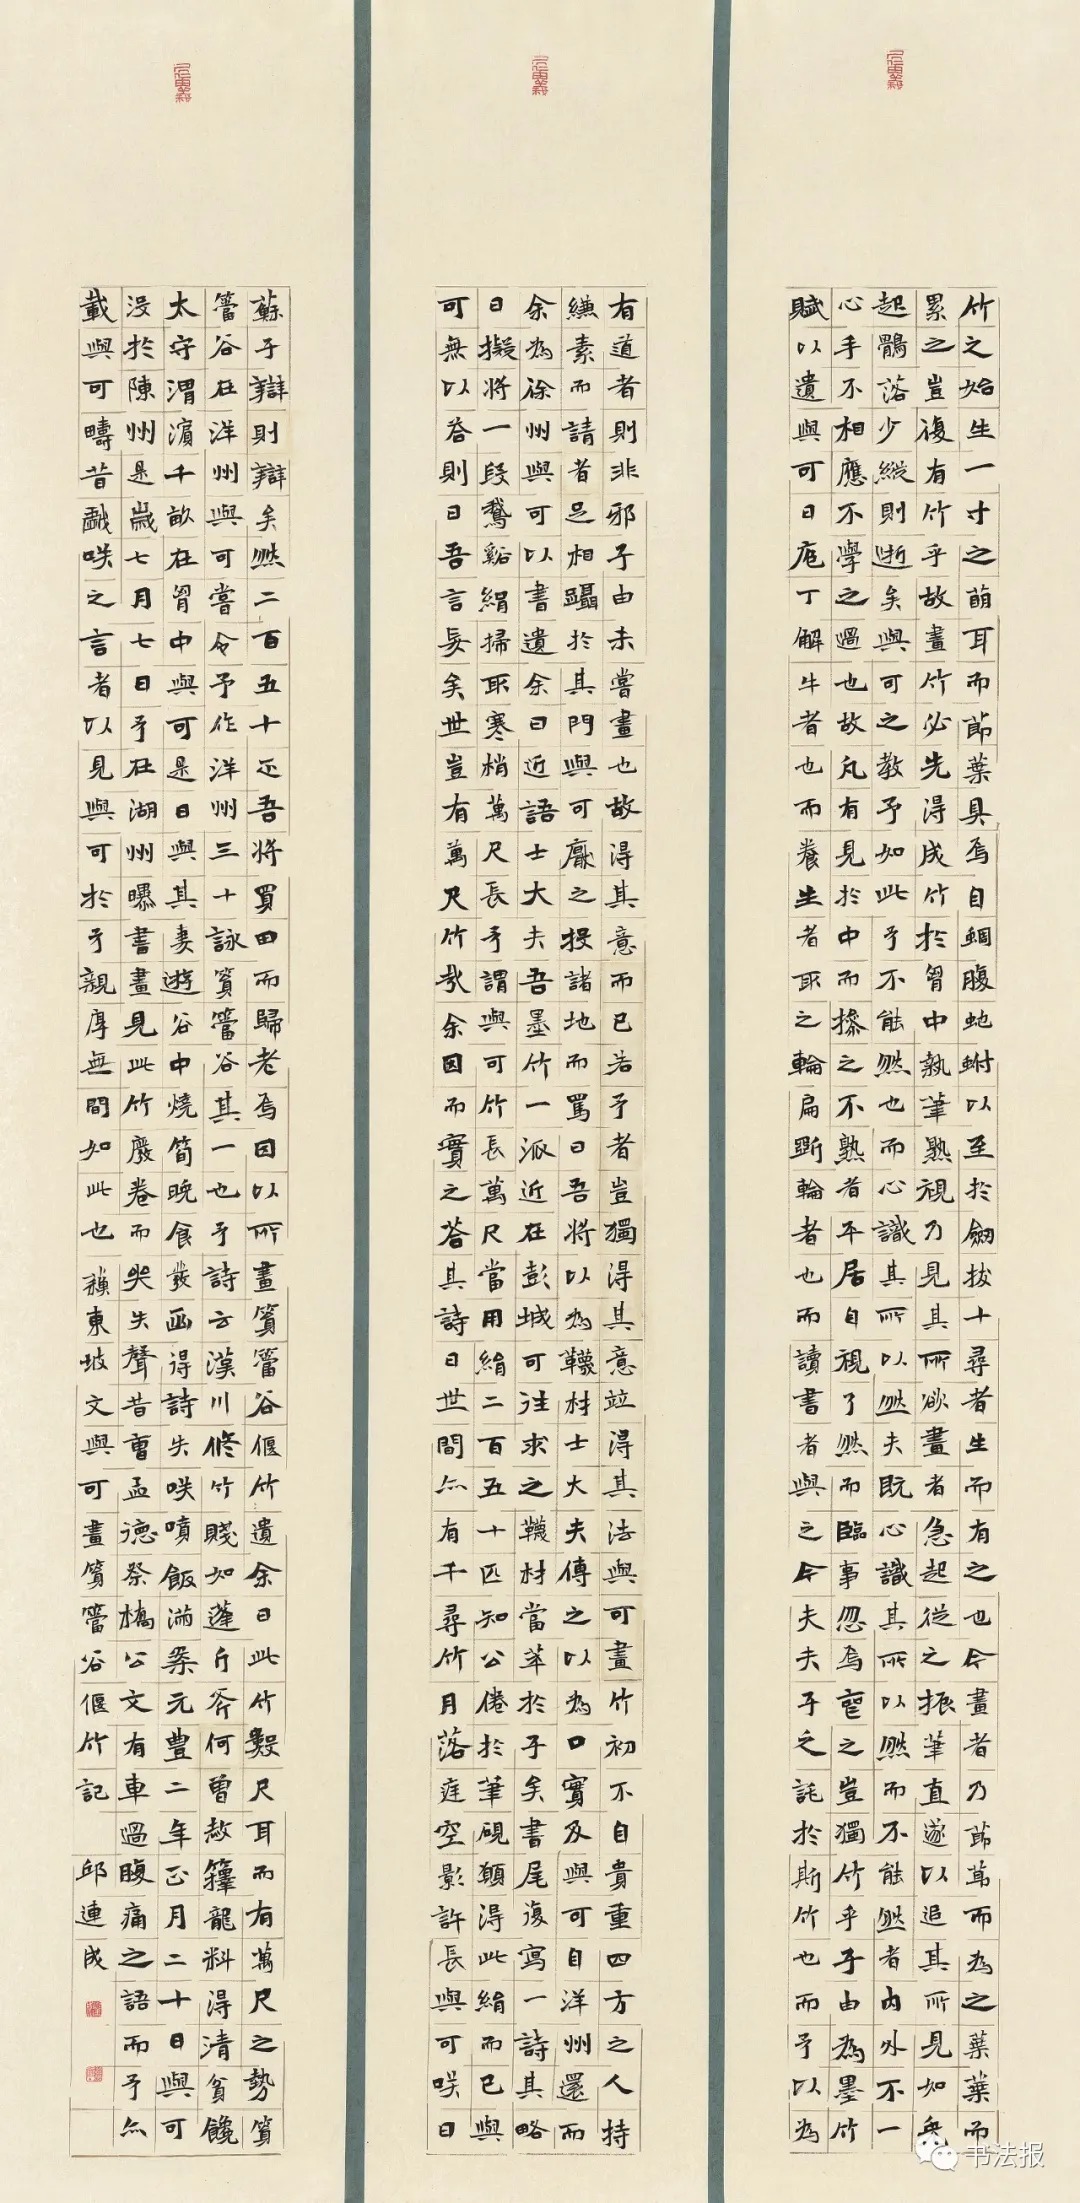 竹之始生一寸之萌耳而節葉具焉自蜩腹蛇蚹以至於劒拔十尋者生而有之也今畫者乃節節而為之葉葉而
累之豈復有竹乎故畫竹必先得成竹於胷中執筆熟視乃見其所欲畫者急起從之振筆直遂以追其所見如兔
起鶻落少縱則逝矣與可之教予如此予不能然也而心識其所以然夫既心識其所以然而不能然者內外不一
心手不相應不學之過也故凡有見於中而操之不熟者平居自視了然而臨事忽焉喪之豈獨竹乎子由為墨竹
賦以遺與可曰庖丁解牛者也而養生者取之輪扁斲輪者也而讀書者與之今夫夫子之託於斯竹也而予以為
有道者則非邪子由未嘗畫也故得其意而已若予者豈獨得其意竝得其法與可畫竹初不自貴重四方之人持
縑素而請者足相躡於其門與可厭之投諸地而罵曰吾將以為韈材士大夫傳之以為口實及與可自洋州還而
余為徐州與可以書遺余曰近語士大夫吾墨竹一派近在彭城可往求之韈材當萃於子矣書尾復寫一詩其略
曰擬將一段鵞谿絹掃取寒梢萬尺長予謂與可竹長萬尺當用絹二百五十匹知公倦於筆硯願得此絹而已與
可無以答則曰吾言妄矣世豈有萬尺竹哉余因而實之答其詩曰世間亦有千尋竹月落庭空影許長與可咲曰
蘇子辯則辯矣然二百五十匹吾將買田而歸老焉因以所畫篔簹谷偃竹遺余曰此竹數尺耳而有萬尺之勢篔
簹谷在洋州與可嘗令予作洋州三十詠篔簹谷其一也予詩云漢川脩竹賤如蓬斤斧何曾赦籜龍料得清貧饞
太守渭濱千畝在胷中與可是日與其妻遊谷中燒筍晚食發函得詩失咲噴飯滿案元豐二年正月二十日與可
沒於陳州是歲七月七日予在湖州曝書畫見此竹廢卷而哭失聲昔曹孟德祭橋公文有車過腹痛之語而予亦
載與可疇昔戲咲之言者以見與可於予親厚無間如此也 蘇東坡文與可畫篔簹谷偃竹記 邱連成
书法报